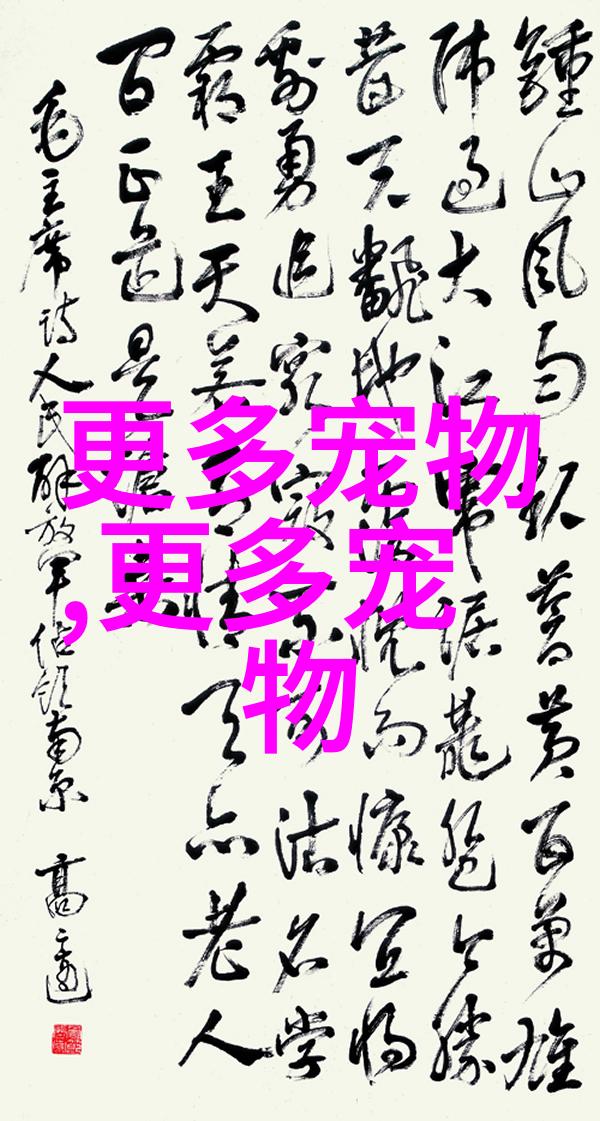 鍾山风雨起苍黄百萬雄
师过大江虎踞龍盘今胜
昔天翻地覆慨而慷宜将
剩勇追穷寇不可沽名学
霸王天若有情天亦老人
间正道是沧桑
毛主席诗人民解放军占领南京 高
更多宠物
,更多宠
物